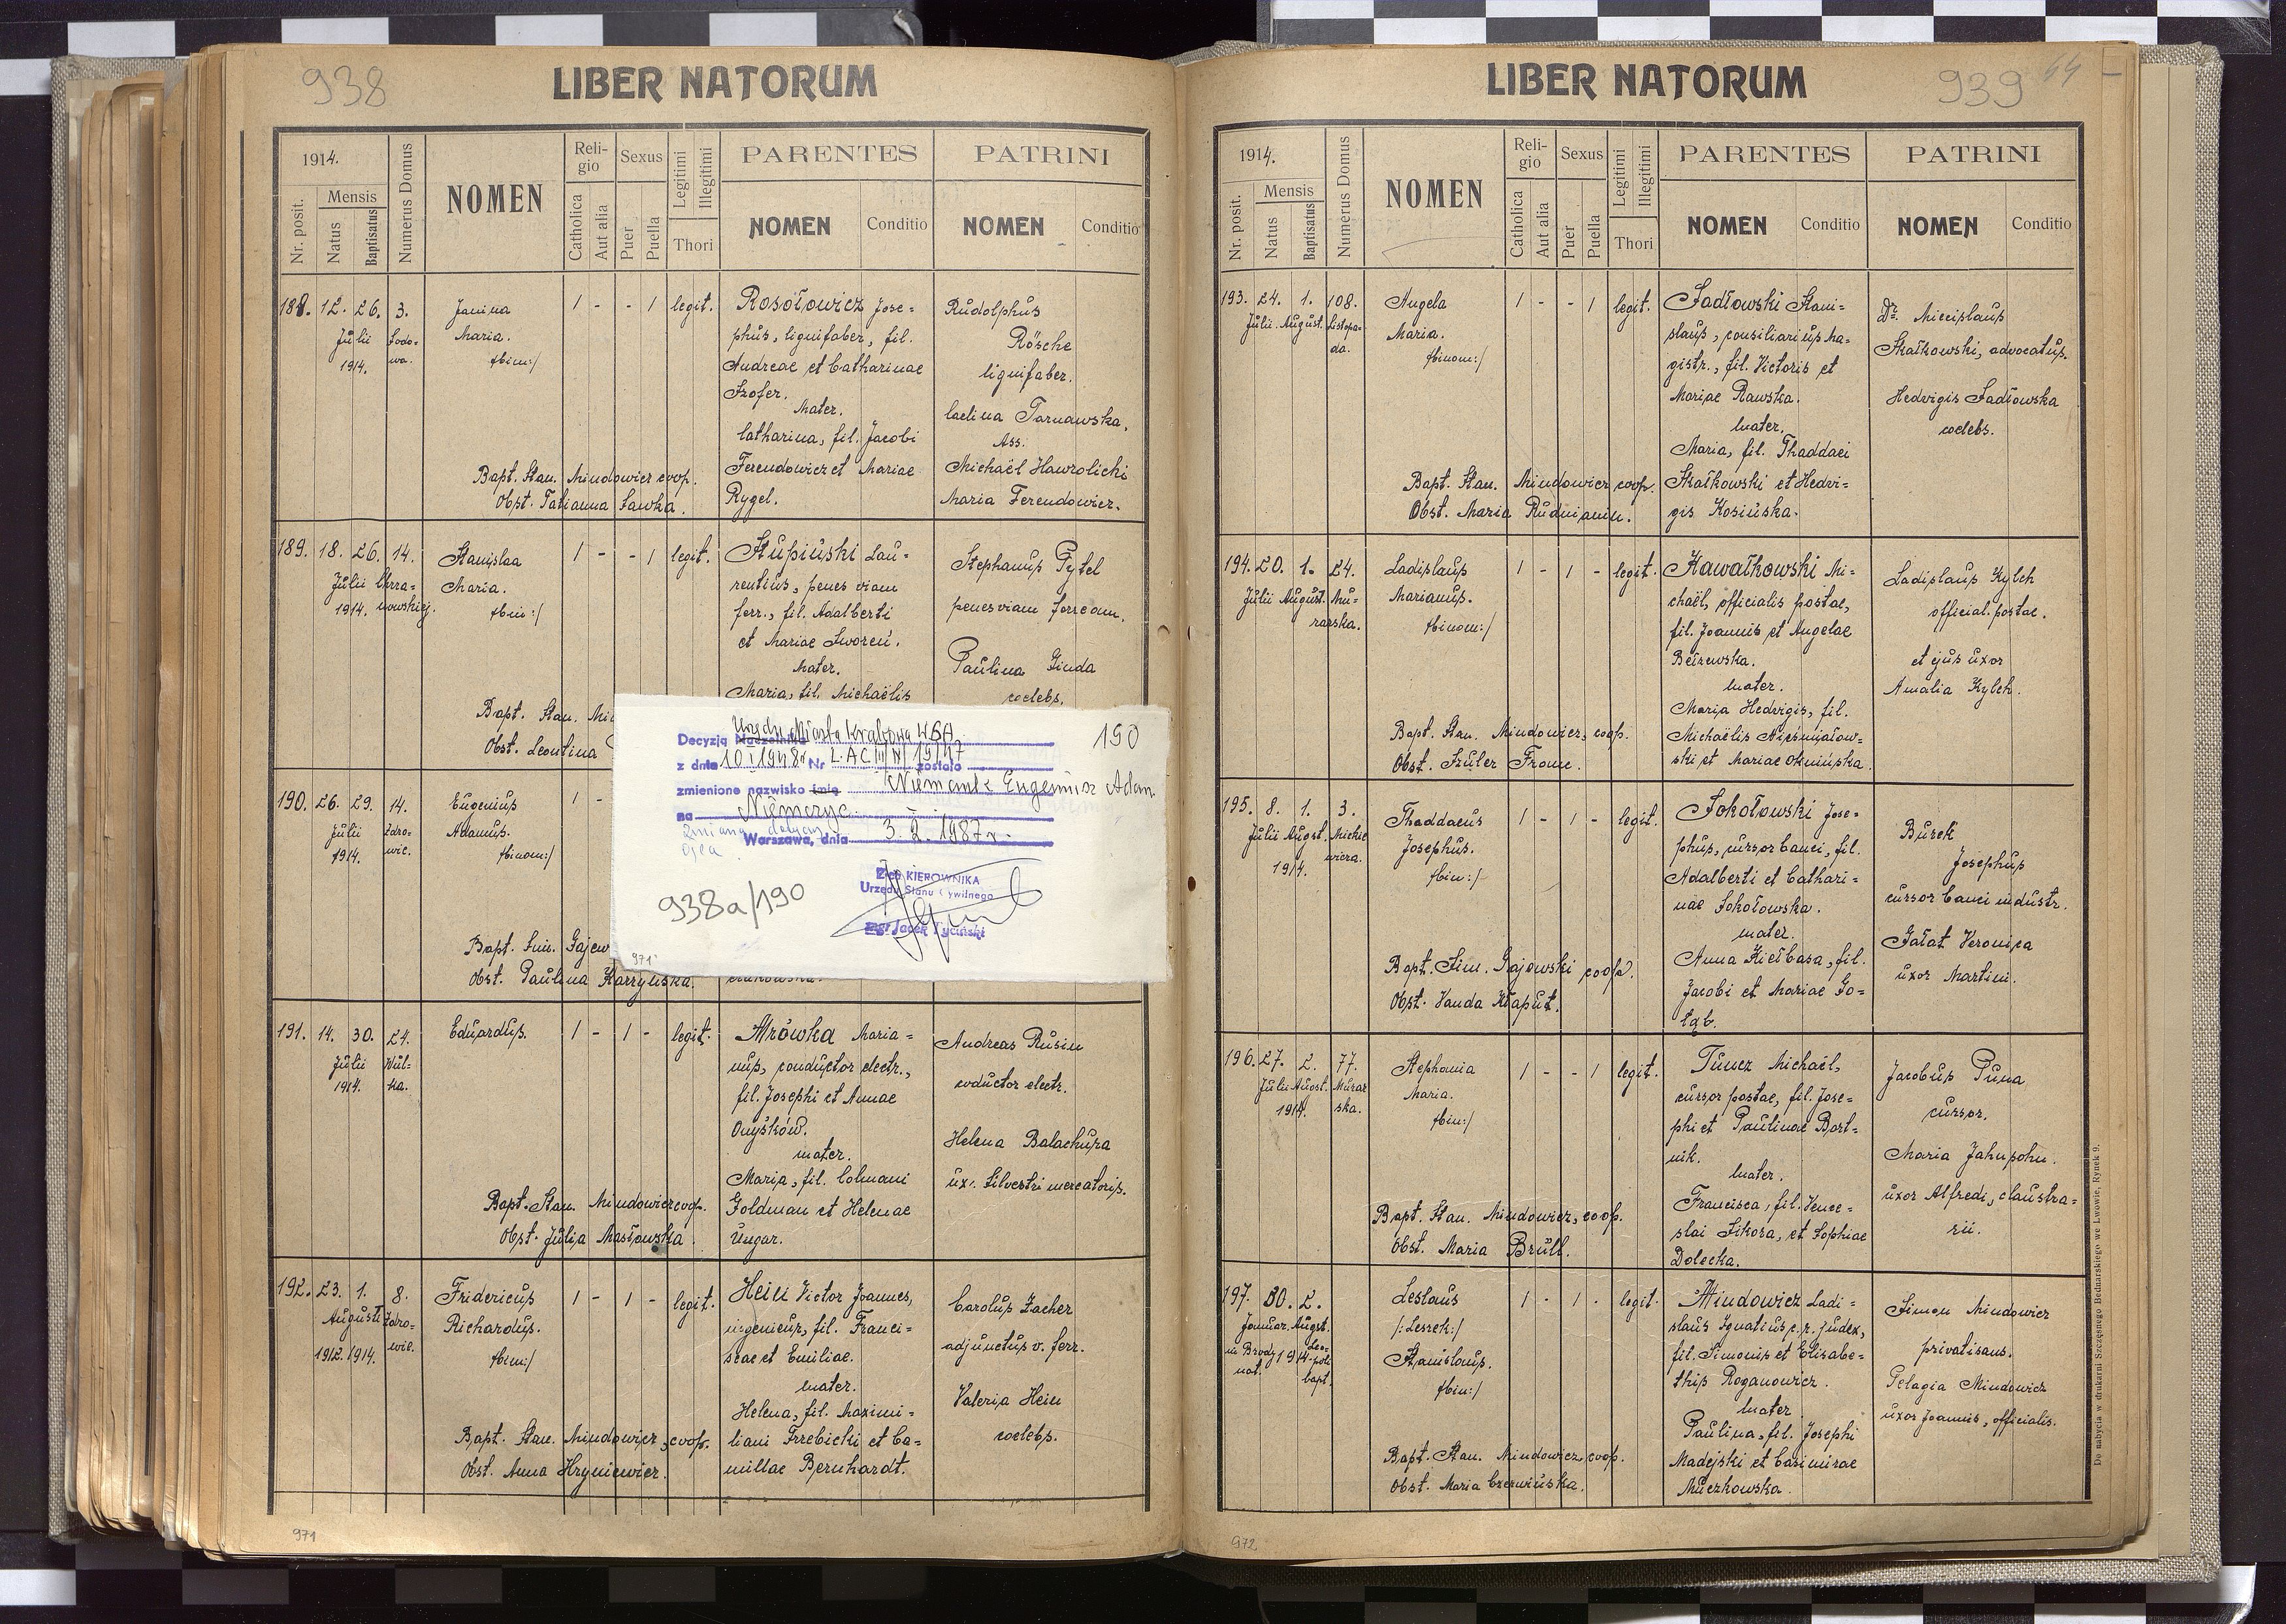 938
LIBER NATORUM
1914.
Nr. posit.
Mensis
Natus
Baptisatus
Numerus Domus
NOMEN
Religio
Catholica
Aut alia
Sexus
Puer
Puella
Legitimi
Illegitimi
Thori
PARENTES
NOMEN
Conditio
PATRINI
NOMEN
Conditio
188. 12. 26. 3.
Julii
1914.
Janina
Maria.
/:bin:/
1 - - 1 legit.
Rosołowicz Jose=
phus, lignifaber, fil.
Andreae et Catharinae
Szofer.
Mater.
Catharina, fil. Jacobi
Ferendowicz et Mariae
Rygel.
Rudolphus
Rösche
lignifaber.
Tarnawska.
Ass.
Michaël Hawrolicki
Maria Ferendowicz.
Bapt. Stan. Mindowicz coop.
Obst. Tatianna Sawka.
189. 18. 26. 14.
Julii
1914.
Stanislaa
Maria.
/:bin:/
1 - - 1 legit.
Stupiński Lau=
rentius, penes viam
ferr., fil. Adalberti
et Mariae Sworeń.
Mater.
Maria, fil. Michaëlis
Stephanus Pytel
penes viam ferream.
Paulina Ginda
coelebs.
Bapt. Stan.
Obst. Leontina
190. 26. 29. 14.
Julii Zdro=
1914. wie.
Eugenius
Adamus.
/:binom:/
1 -
Bapt. Sim. Gajew
Obst. Paulina Karzyńska.
190
Urzędu Miasta Krakowa
Decyzją Naczelnika
z dnia 10 I 1948 r Nr L.AC III/N/19/47 zostało
zmienione nazwisko imię Niemantz Eugeniusz Adam
na Niemczyc
zmiana dotyczy
ojca
Warszawa, dnia 3. 2. 1987 r.
938a/190
Z-ca KIEROWNIKA
Urzędu Stanu Cywilnego
mgr Jacek Tyciński
971
191. 14. 30. 24.
Julii Wul=
1914. ka.
Eduardus.
1 - 1 - legit.
Mrówka Maria=
nus, conductor electr.,
fil. Josephi et Annae
Onyśków.
mater.
Maria, fil. Colmani
Goldman et Helenae
Ungar.
Andreas Rusin
coductor electr.
Helena Balachura
ux. Silvestri mercatoris.
Bapt. Stan. Mindowicz coop.
Obst. Julia Masłowska.
192. 23. 1. 8.
Augusti Zdro=
1912. 1914. wie.
Fridericus
Richardus.
/:bin:/
1 - 1 - legit.
Hein Victor Joannes,
ingenieur, fil. Franci=
scae et Emiliae.
mater.
Helena, fil. Maximi=
liani Trzebicki et Ca=
millae Bernhardt.
Carolus Zacher
adjunctus v. ferr.
Valeria Hein
coelebs.
Bapt. Stan. Mindowicz, coop.
Obst. Anna Hryniewicz.
971
LIBER NATORUM
939
44
1914.
Nr. posit.
Mensis
Natus
Baptisatus
Numerus Domus
NOMEN
Religio
Catholica
Aut alia
Sexus
Puer
Puella
Legitimi
Illegitimi
Thori
PARENTES
NOMEN
Conditio
PATRINI
NOMEN
Conditio
193. 24. 1. 108.
Julii. August. Listopa=
da.
Angela
Maria.
/:binom:/
1 - - 1 legit.
Sadłowski Stani=
slaus, consiliarius ma=
gistr., fil. Victoris et
Mariae Rawska.
mater.
Maria, fil. Thaddaei
Skałkowski et Hedvi=
gis Kosińska.
Dr. Miecislaus
Skałkowski, advocatus.
Hedvigis Sadłowska
coelebs.
Bapt. Stan. Mindowicz coop.
Obst. Maria Rudnianin.
194. 20. 1. 24.
Julii August. Mu=
rarska.
Ladislaus
Marianus.
/:binom:/
1 - 1 - legit.
Kawałkowski Mi=
chaël, officialis postae,
fil. Joannis et Angelae
mater.
Maria Hedvigis, fil.
Michaëlis
ski et Mariae Oknińska.
Ladislaus Kylch
official. postae.
et ejus uxor
Amalia Kylch.
Bapt. Stan. Mindowicz, coop.
Obst. Szuler Frone.
195. 8. 1. 3.
Julii August. Mickie
1914. wicza.
Thaddaeus
Josephus.
/:bin:/
1 - 1 - legit.
Sokołowski Jose=
phus, cursor banci, fil.
Adalberti et Cathari=
nae Sokołowska.
mater.
Anna Kiełbasa, fil.
Jacobi et Mariae Go=
łąb.
Burek
Josephus
cursor banci industr.
Gałat Veronica
uxor Martini.
Bapt. Sim. Gajowski coop.
Obst. Vanda Kłaput.
196. 27. 2. 77.
Julii August. Murar
1914. ska.
Stephania
Maria.
/:bin:/
1 - - 1 legit.
Tuncz Michaël,
cursor postae, fil. Jose=
phi et Paulinae Bart=
nik.
mater.
Francisca, fil. Vence=
slai Sikora, et Sophiae
Dolecka.
Jacobus Puna
cursor.
Maria Jahnsohn.
uxor Alfredi, claustra=
rii.
Bapt. Stan. Mindowicz, coop.
Obst. Maria Brüll.
197. 30. 2.
Januar. August.
in Brody 1914 Leo=
nat. poli
bapt.
Leslaus
/:Leszek:/
Stanislaus.
/:bin:/
1 - 1 - legit.
Mindowicz Ladi=
slaus Ignatius c.r. judex,
fil. Simonis et Elisabe=
this Roganowicz.
mater
Paulina, fil. Josephi
Madejski et Casimirae
Muczkowska.
Simon Mindowicz
privatisans.
Pelagia Mindowicz
uxor Joannis, officialis.
Bapt. Stan. Mindowicz, coop.
Obst. Maria Czerwińska.
Do nabycia w drukarni Szczęsnego Bednarskiego we Lwowie, Rynek 9.
972